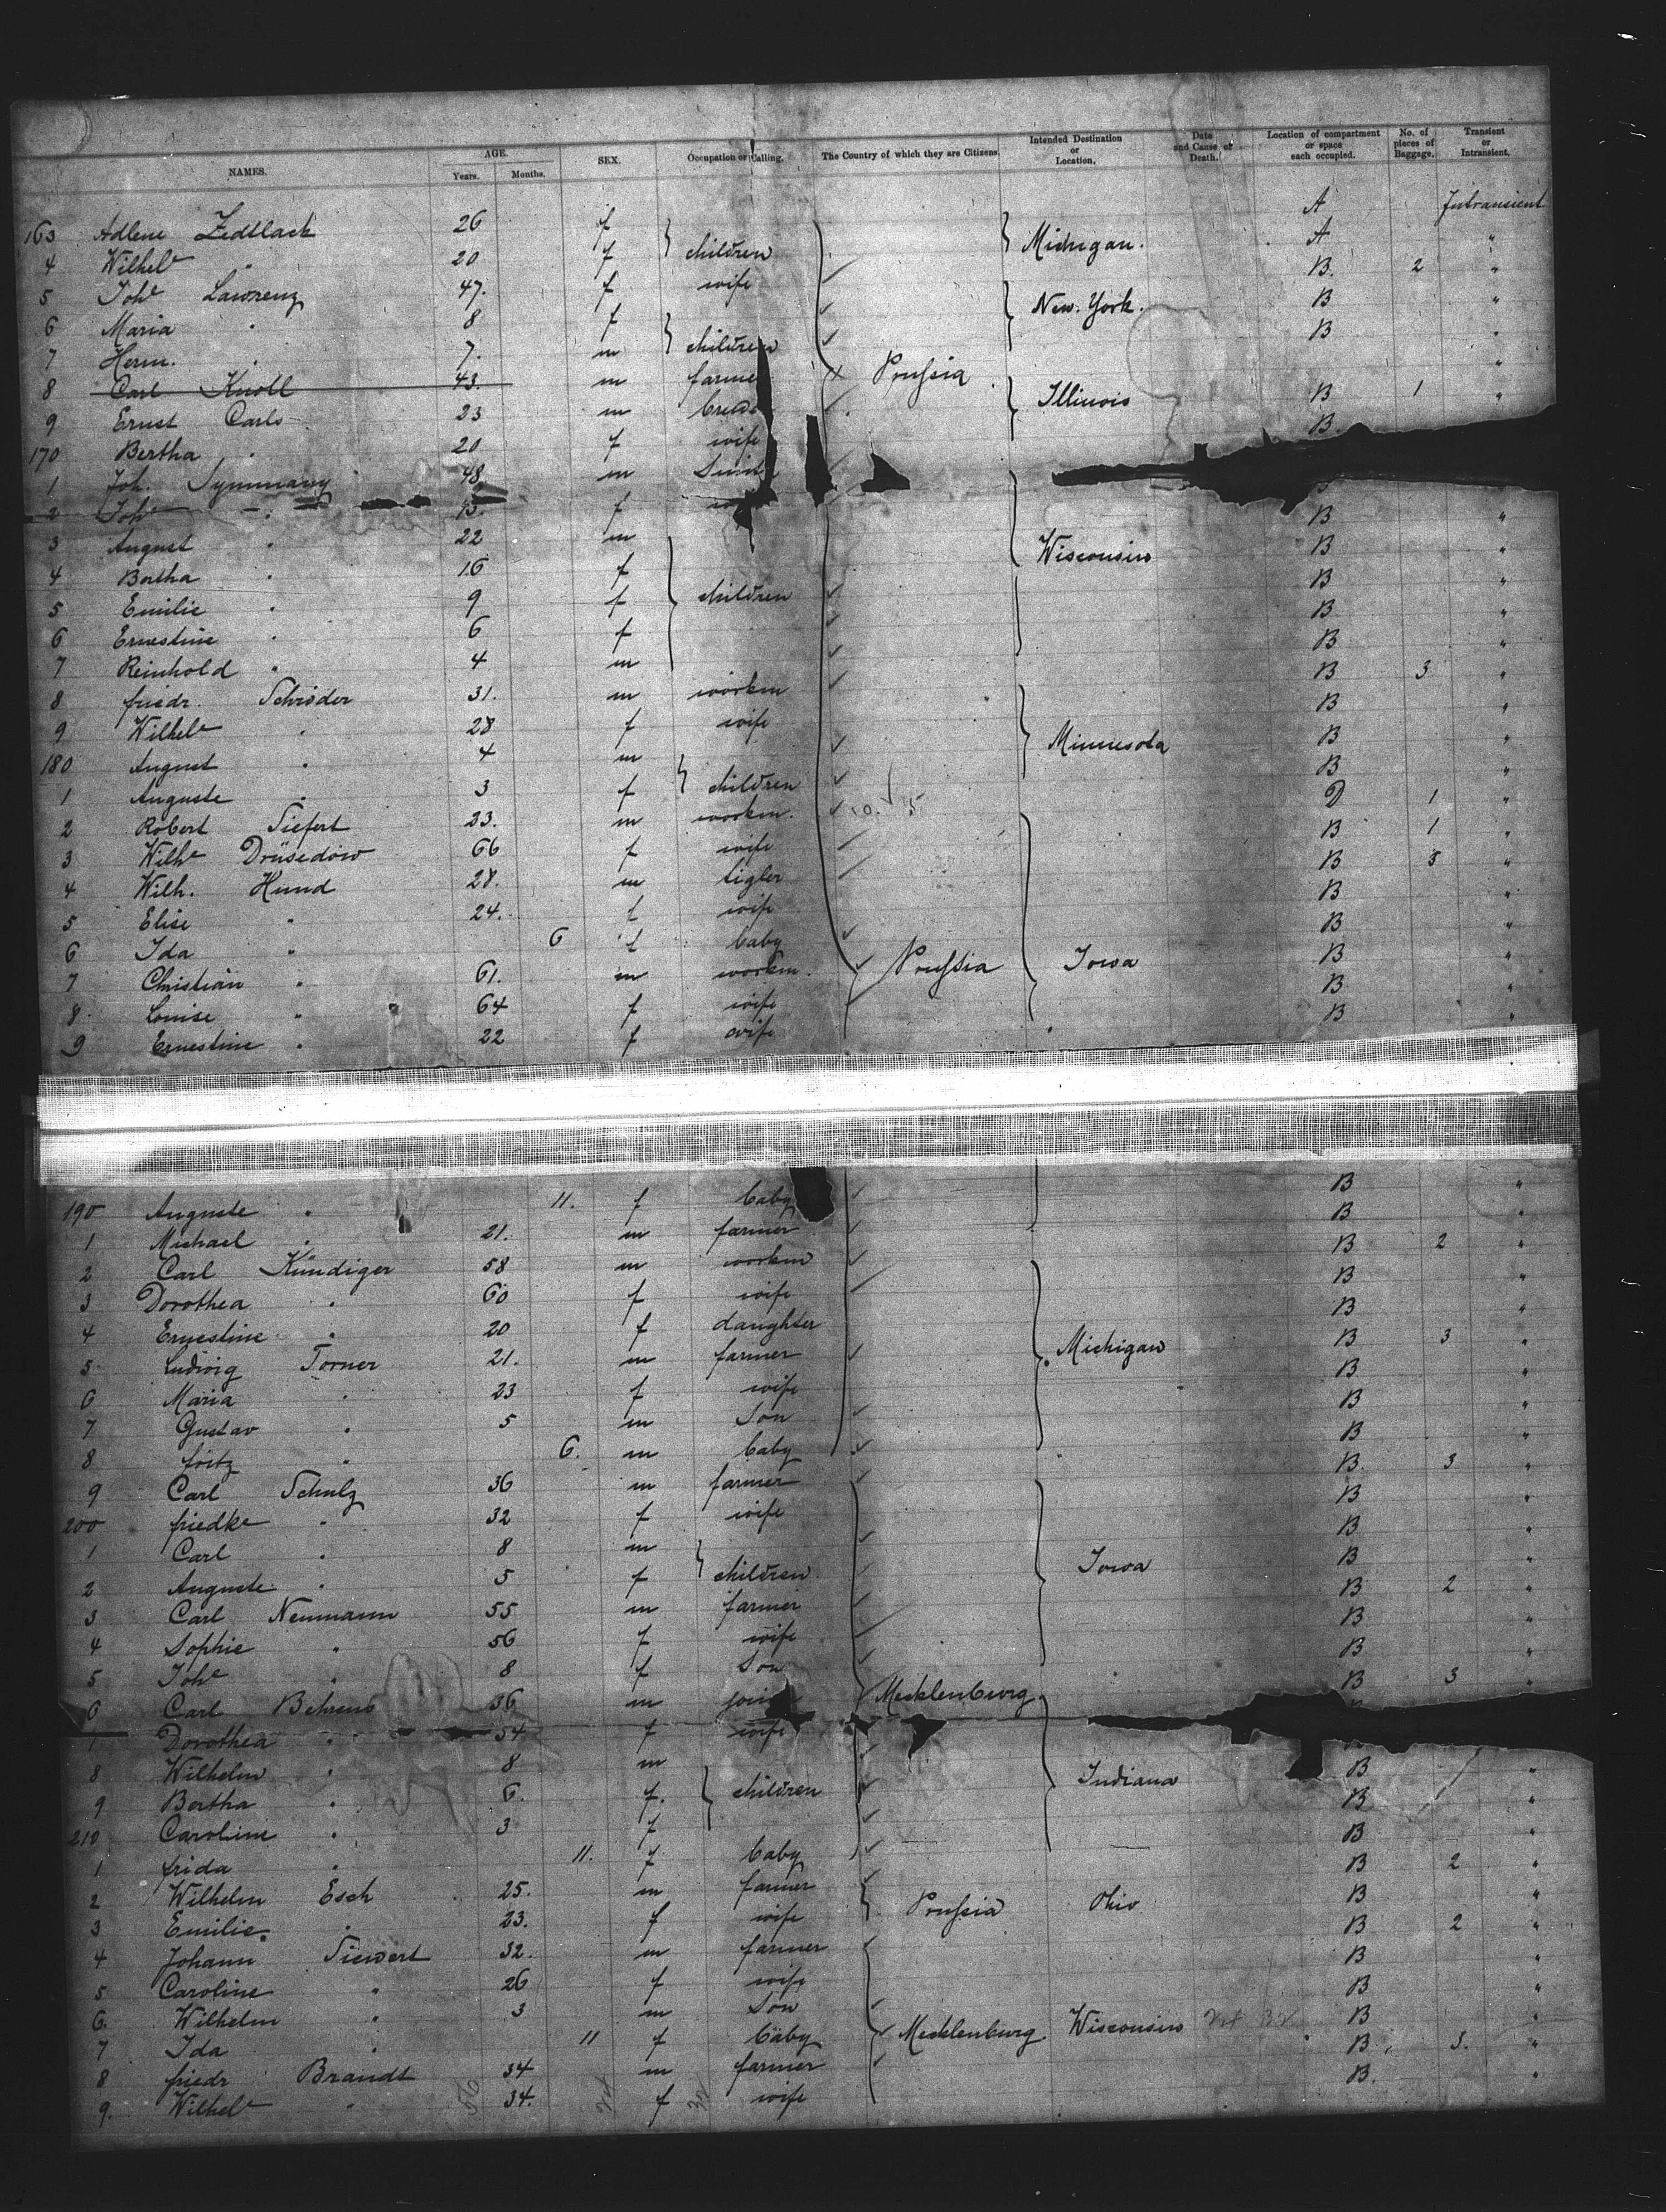 NAMES. AGE. Years. Months. SEX. Occupation or Calling. The Country of which they are Citizens. Intended Destination or Location. Date and Cause of Death. Location of compartment or space each occupied. No. of pieces of Baggage. Transient or Intransient.
163 Adlene Zedlack 26 f A Intransient
4 Wilhele " 20 f children Michigan. A "
5 Johe Lawrenz 47. f wife B. 2 "
6 Maria " 8 f New-York. B "
7 Herm. " 7. m children B "
8 Carl Knoll 43. m farmer Prussia "
9 Ernst Carls 23 m Illinois B 1 "
170 Bertha " 20 f wife B
1 Joh. 48 m
2 Johe " f B "
3 August " 22 m Wisconsin B "
4 Bertha " 16 f B "
5 Emilie " 9 f children B "
6 Ernestine " 6 f B "
7 Reinhold " 4 m B 3 "
8 friedr. Schröder 31. m workm B "
9 Wilhele " 28 f wife Minnesota B "
180 August " 4 m B "
1 Auguste " 3 f children D 1 "
2 Robert Siefert 23. m workm. B 1 "
3 Wilhe Drüsedow 66 f wife B 3 "
4 Wilh. Hund 28. m tigler B "
5 Elise " 24. f wife B "
6 Ida " 6 f baby B "
7 Christian " 61. m workm. Prussia Iowa B "
8 Louise " 64 f wife B "
9 Ernestine " 22 f wife
190 Auguste " 11. f baby B "
1 Michael " 21. m farmer B "
2 Carl Kündiger 58 m workm B 2 "
3 Dorothea " 60 f wife B "
4 Ernestine " 20 f daughter B "
5 Ludwig Torner 21. m farmer Michigan B 3 "
6 Maria " 23 f wife B "
7 Gustav " 5 m Son B "
8 fritz " 6. m baby B "
9 Carl Schulz 36 m farmer B. 3 "
200 friedke " 32 f wife B "
1 Carl " 8 m B "
2 Auguste " 5 f children Iowa B "
3 Carl Neumann 55 m farmer B 2 "
4 Sophie " 56 f wife B "
5 Johe " 8 f Son B "
6 Carl Behrens 36 m Mecklenburg B 3 "
Dorothea " 34 f wife
8 Wilhelm " 8 m B "
9 Bertha " 6. f. children Indiana B "
210 Caroline " 3 f B "
1 frida " 11. f baby B 2 "
2 Wilhelm Esch 25. m farmer B "
3 Emilie " 23. f wife Prussia Ohio B 2 "
4 Johann Siewert 32. m farmer B "
5 Caroline " 26 f wife B "
6. Wilhelm " 3 m Son B "
7 Ida " 11 f baby Mecklenburg. Wisconsin B 3. "
8 friedr Brandt 34 m farmer B. "
9. Wilhele " 34. f wife